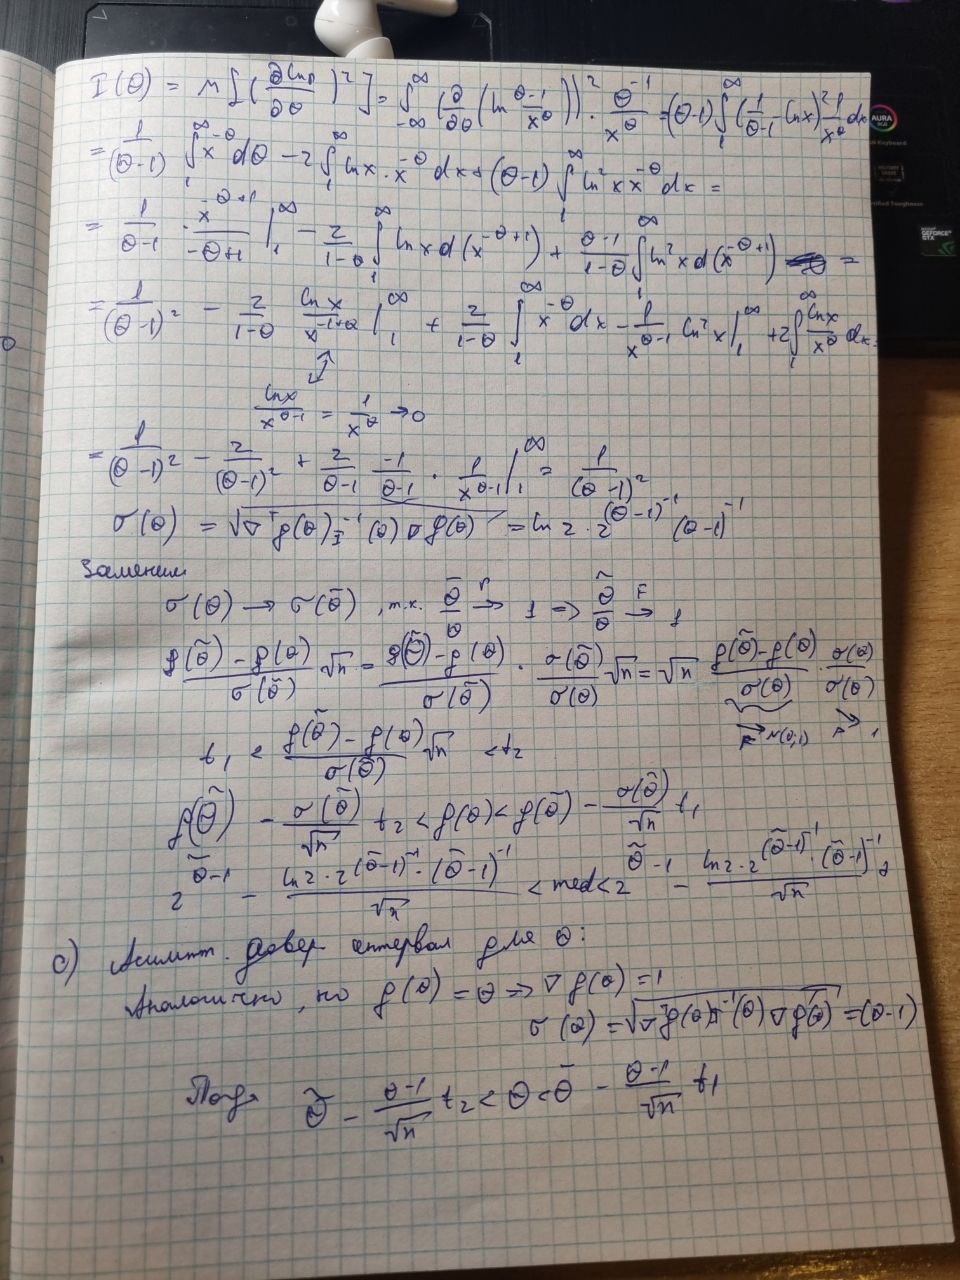 I(θ) = M[(∂lnp/∂θ)²] = ∫_{-∞}^{∞} (∂/∂θ (ln (θ-1)/x^θ))² · (θ-1)/x^θ = (θ-1)∫_1^∞ (1/(θ-1) - lnx)² 1/x^θ dx
= 1/(θ-1) ∫_1^∞ x^{-θ} dθ - 2∫_1^∞ lnx · x^{-θ} dx + (θ-1)∫_1^∞ ln²x x^{-θ} dx =
= 1/(θ-1) · x^{-θ+1}/(-θ+1) |_1^∞ - 2/(1-θ) ∫_1^∞ lnx d(x^{-θ+1}) + (θ-1)/(1-θ) ∫_1^∞ ln²x d(x^{-θ+1}) =
= 1/(θ-1)² - 2/(1-θ) lnx/x^{-1+θ} |_1^∞ + 2/(1-θ) ∫_1^∞ x^{-θ} dx - 1/x^{θ-1} ln²x |_1^∞ + 2∫_1^∞ lnx/x^θ dx =
lnx/x^{θ-1} = 1/x^θ → 0
= 1/(θ-1)² - 2/(θ-1)² + 2/(θ-1) · -1/(θ-1) · 1/x^{θ-1} |_1^∞ = 1/(θ-1)²
σ(θ) = √(∇ᵀg(θ) I^{-1}(θ) ∇g(θ)) = ln2 · 2^{(θ-1)^{-1}} (θ-1)^{-1}
Заменим
σ(θ) → σ(θ̃), т.к. θ̃/θ →^P 1 => θ̃/θ →^F 1
(g(θ̃) - g(θ))/σ(θ̃) √n = (g(θ̃) - g(θ))/σ(θ̃) · σ(θ̃)/σ(θ) √n = √n (g(θ̃) - g(θ))/σ(θ) · σ(θ)/σ(θ)
→_F N(0,1) →_F 1
t₁ < (g(θ̃) - g(θ))/σ(θ̃) √n < t₂
g(θ̃) - σ(θ̃)/√n t₂ < g(θ) < g(θ̃) - σ(θ̃)/√n t₁
2^{θ̃-1} - ln2 · 2^{(θ̃-1)^{-1}} · (θ̃-1)^{-1}/√n < med < 2^{θ̃-1} - ln2 · 2^{(θ̃-1)^{-1}} · (θ̃-1)^{-1}/√n
c) Асимпт. довер интервал для θ:
Аналогично, но g(θ) = θ => ∇g(θ) = 1
σ(θ) = √(∇ᵀg(θ) I^{-1}(θ) ∇g(θ)) = (θ-1)
θ̃ - (θ-1)/√n t₂ < θ < θ̃ - (θ-1)/√n t₁
AURA
GEFORCE
GTX